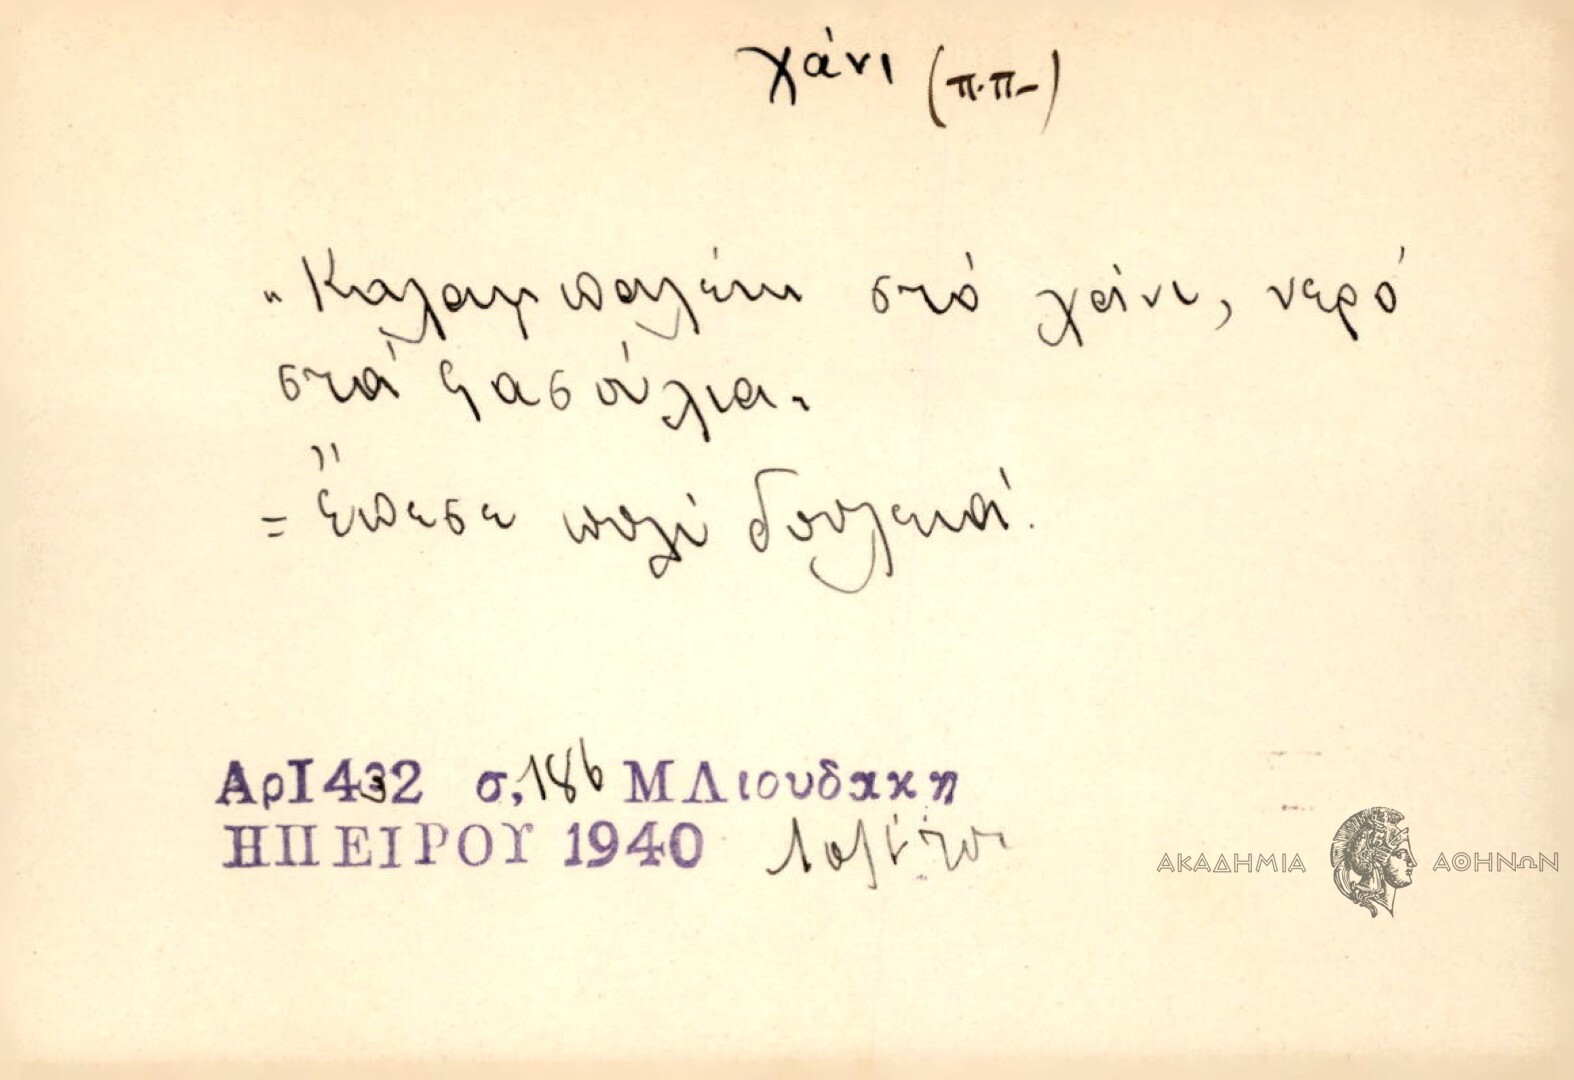 χάνι (π.π-)
"Καλαμπαλίκι στό χάνι, νερό
στά φασούλια."
= Ἔπεσε πολύ δουλειά.
Αρ1432 σ,186 Μ Λιουδακη
ΗΠΕΙΡΟΥ 1940
ΑΚΑΔΗΜΙΑ ΑΘΗΝΩΝ